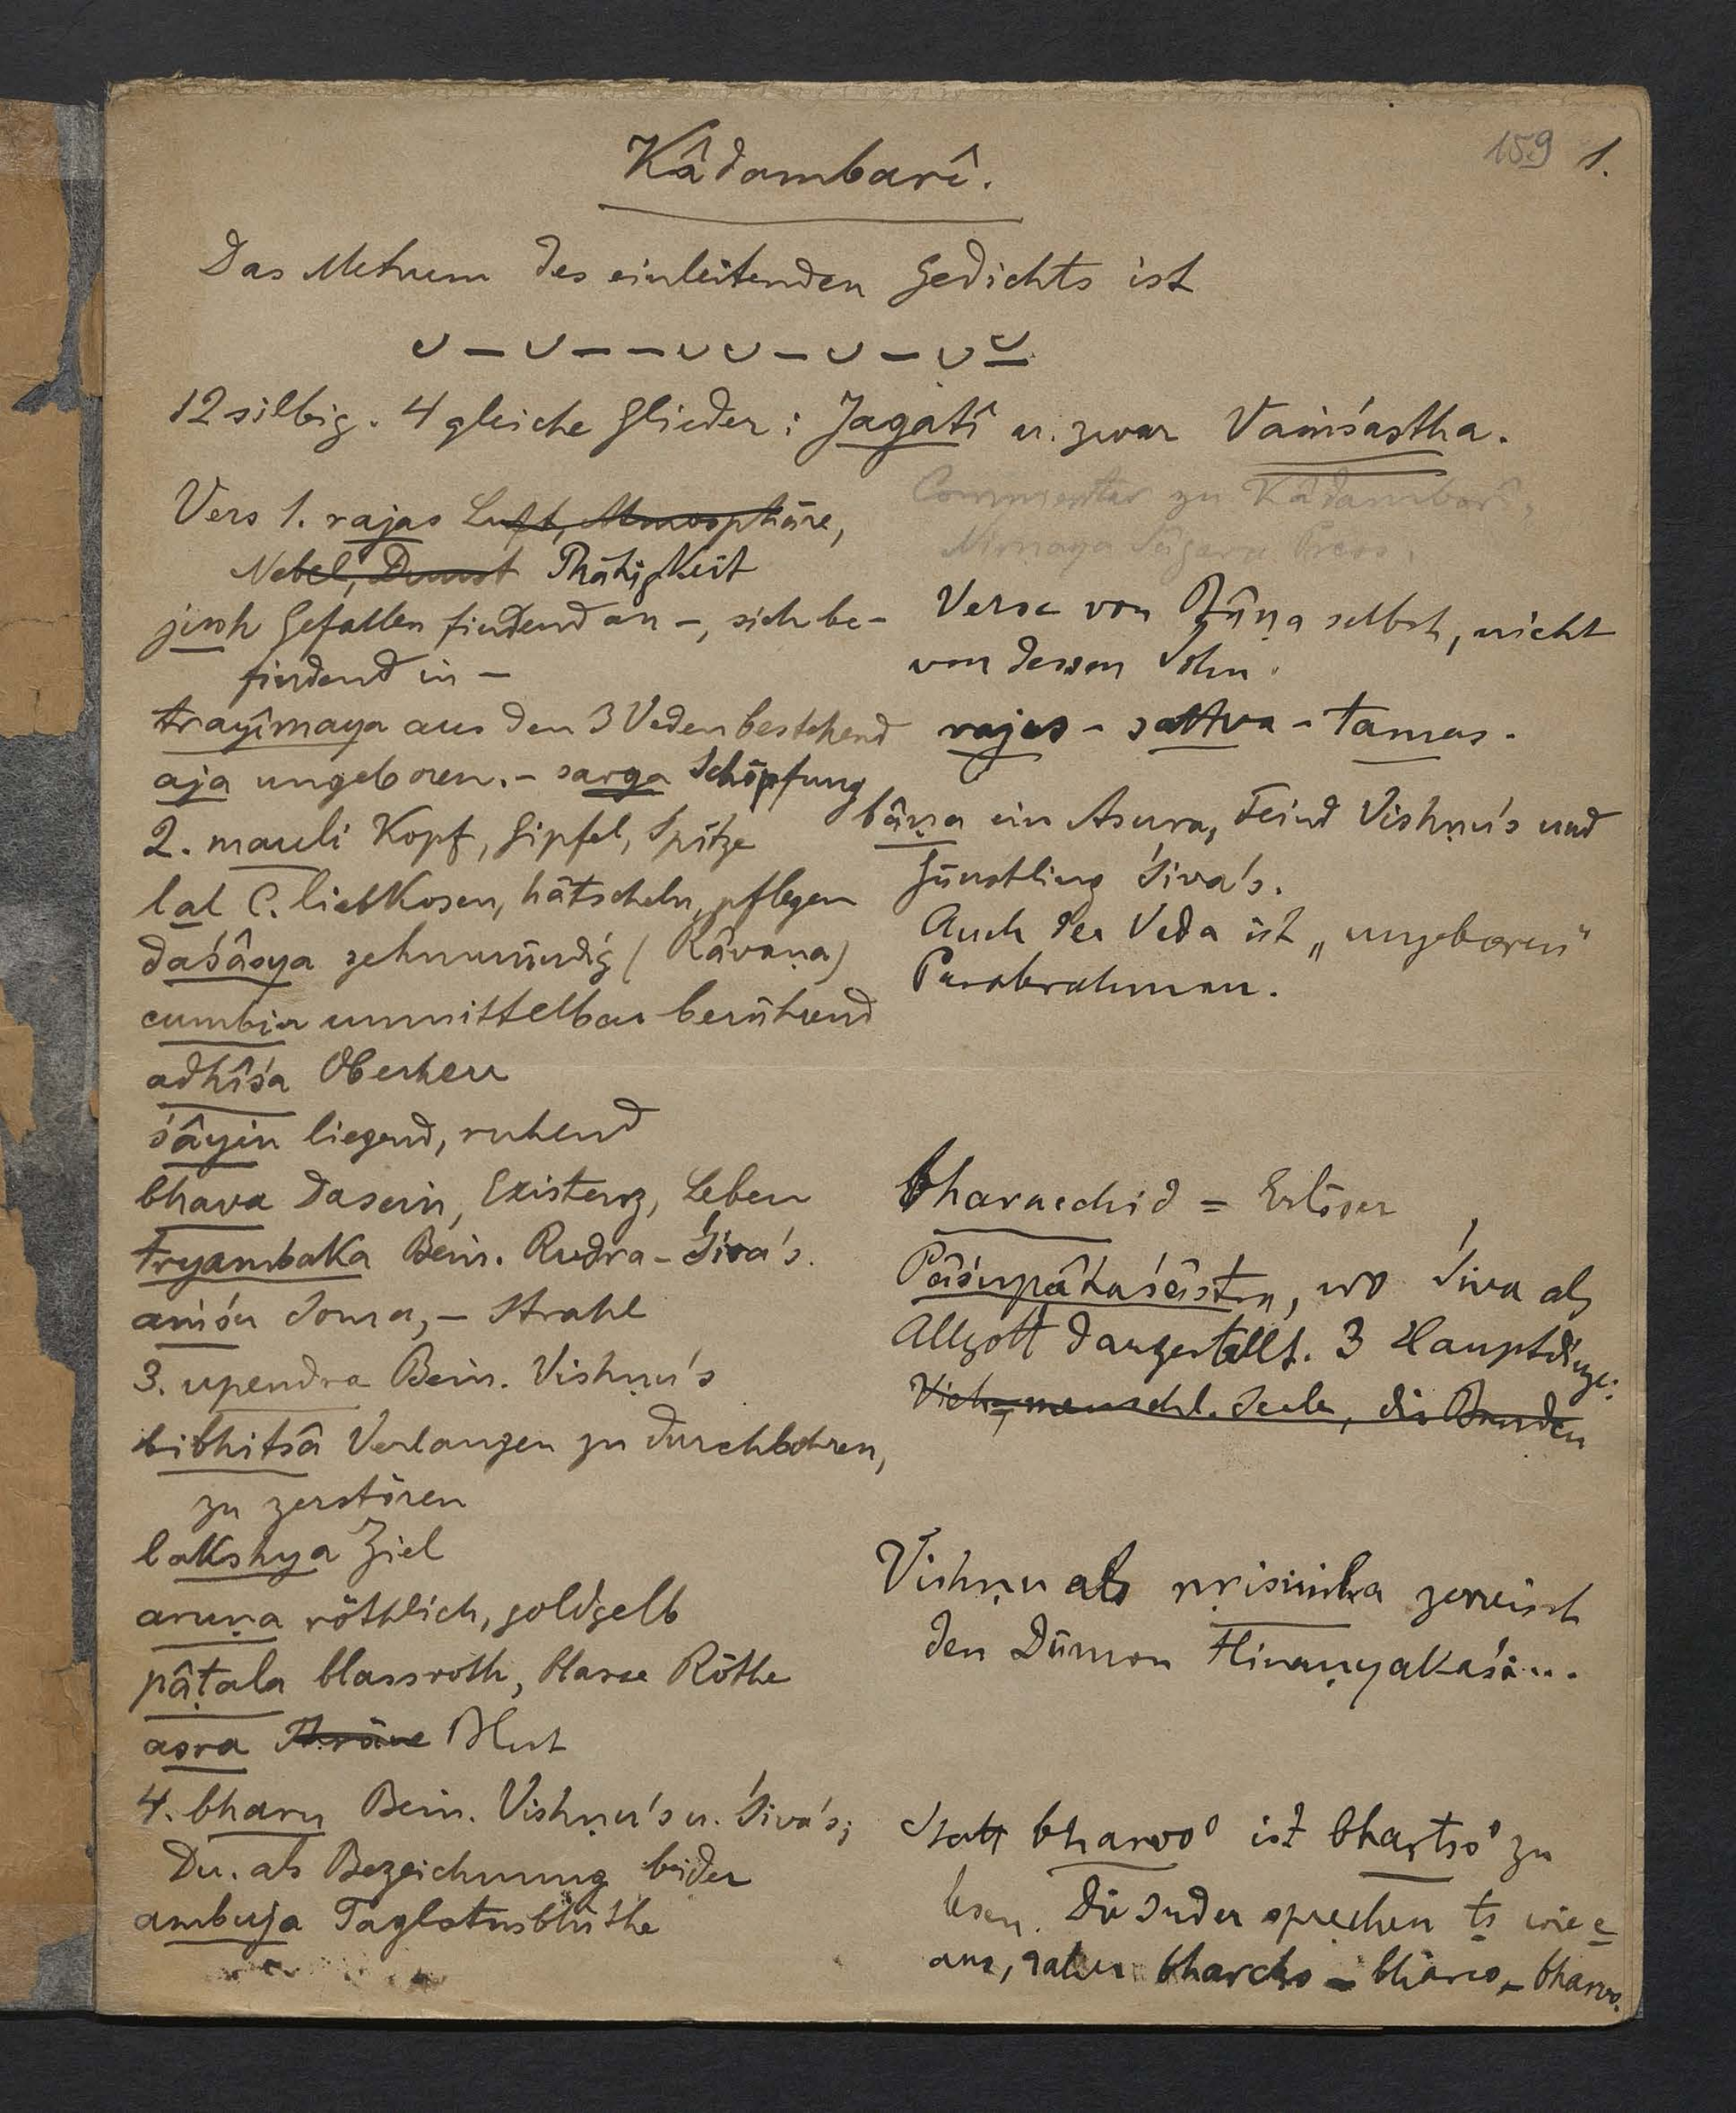 159 1.
Kâdambarî.
Das Metrum des einleitenden Gedichts ist
⏑ – ⏑ – – ⏑ ⏑ – ⏑ – ⏑ ⏓
12 silbig. 4 gleiche Glieder: Jagatî u. zwar Vaṁśastha.
Vers 1. rajas Luft, Atmosphäre,
Nebel, Dunst Thätigkeit
jush Gefallen findend an –, sich be-
findend in –
trayîmaya aus den 3 Veden bestehend
aja ungeboren. – sarga Schöpfung
2. mauli Kopf, Gipfel, Spitze
lal C. liebkosen, hätscheln, pflegen
daśâsya zehnmündig (Râvaṇa)
cumbin unmittelbar berührend
adhîśa Oberherr
śâyin liegend, ruhend
bhava Dasein, Existenz, Leben
tryambaka Bein. Rudra-Śiva's.
aṁśu Soma, – Strahl
3. upendra Bein. Vishṇu's
bibhitsâ Verlangen zu durchbohren,
zu zerstören
lakshya Ziel
aruṇa röthlich, goldgelb
pâṭala blassroth, blasse Röthe
asra Thräne Blut
4. bharu Bein. Vishṇu's u. Śiva's;
Du. als Bezeichnung beider
ambuja Taglotusblüthe
Commentar zu Kâdambarî,
Nirnaya Sâgara Press.
Verse von Bâṇa selbst, nicht
von dessen Sohn.
rajas - sattva - tamas.
bâṇa ein Asura, Feind Vishṇu's und
Günstling Śiva's.
Auch der Veda ist „ungeboren"
Parabrahman.
bhavacchid = Erlöser
Pâśupâtaśâstra, wo Śiva als
Allgott dargestellt. 3 Hauptdinge:
Vieh, menschl. Seele, die Banden
Vishṇu als nṛisiṁha zerreisst
den Dämon Hiraṇyakaśi...
Statt bharvo° ist bhartso° zu
lesen. Die Inder sprechen ts wie c
aus, daher bharcho – bharco – bharvo.